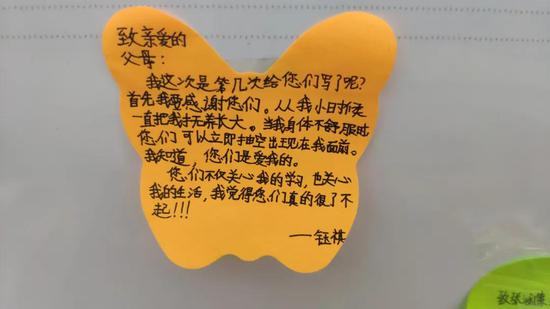 致亲爱的
父母:
我这次是第几次给您们写了呢?
首先我要感谢您们。从我小时候
一直把我抚养长大。当我身体不舒服时
您们可以立即抽空出现在我面前。
我知道,您们是爱我的。
您们不仅关心我的学习,也关心
我的生活,我觉得您们真的很了不
起!!!
——钰祺
致张